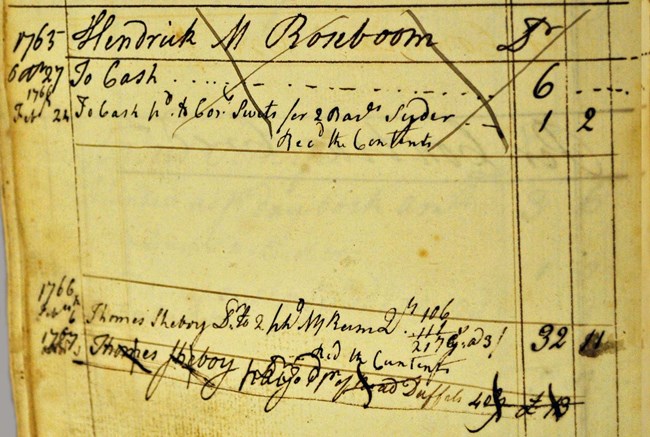 1765 Hendrick M Roseboom Dr
27 To Cash 6
1766 Feb 24 To Cash pd to Cor. Swits for 2 Bars Syder 1 2
Recd the Contents
1766
Feb 6 Thomes Sheboy Dr To 2 hhd NY Rum 106
111
217 G a 3/ 32 11
Recd the Contents
1767 Thomes Sheboy Duffels